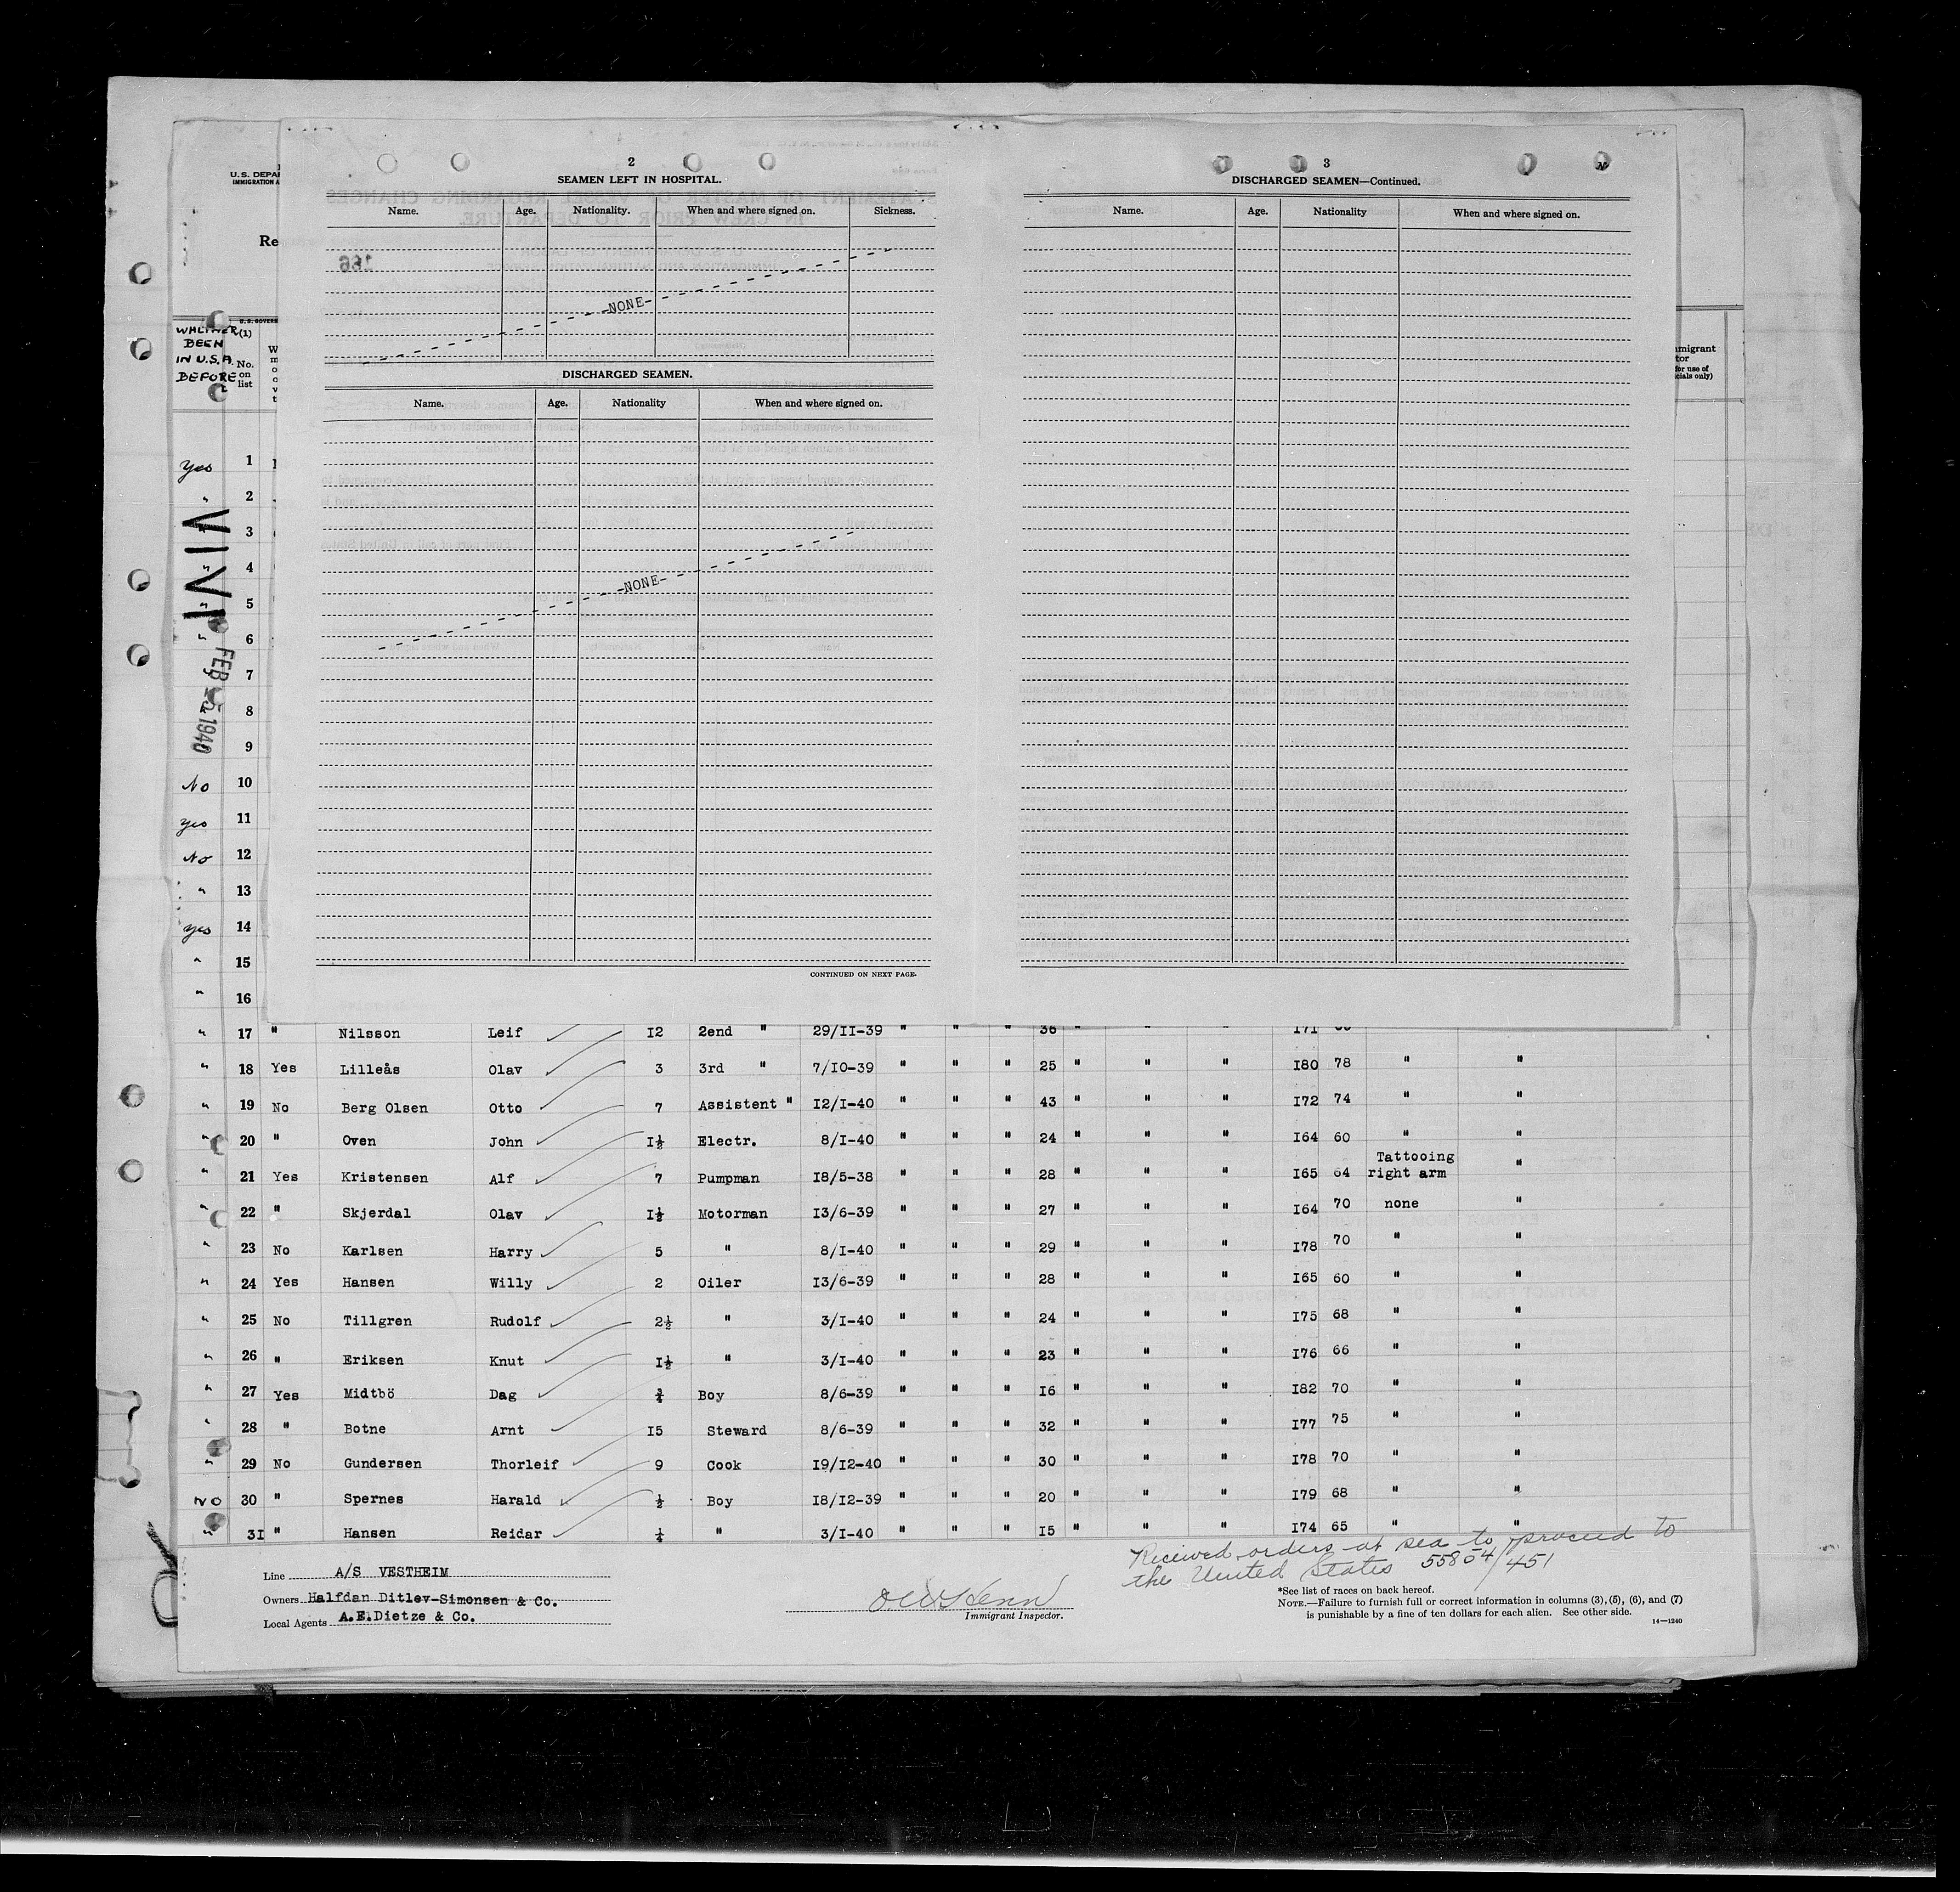 2
SEAMEN LEFT IN HOSPITAL.
Name. Age. Nationality. When and where signed on. Sickness.
166
NONE
DISCHARGED SEAMEN.
Name. Age. Nationality When and where signed on.
NONE
CONTINUED ON NEXT PAGE.
3
DISCHARGED SEAMEN—Continued.
Name. Age. Nationality When and where signed on.
U.S. DEPA
IMMIGRATION A
Re
WHETHER
BEEN
IN U.S.A.
BEFORE
(1)
No.
on
list
migrant
tor
for use of
cials only)
VIVI
FEB 1940
Yes 1
" 2
3
" 4
" 5
" 6
7
8
9
No 10
yes 11
No 12
" 13
yes 14
" 15
" 16
" 17 " Nilsson Leif 12 2end " 29/II-39 " " " 36 " " " I71
" 18 Yes Lilleås Olav 3 3rd " 7/IO-39 " " " 25 " " " I80 78 " "
" 19 No Berg Olsen Otto 7 Assistent " I2/I-40 " " " 43 " " " I72 74 " "
" 20 " Oven John I½ Electr. 8/I-40 " " " 24 " " " I64 60 " "
" 21 Yes Kristensen Alf 7 Pumpman I8/5-38 " " " 28 " " " I65 64 Tattooing right arm "
" 22 " Skjerdal Olav I½ Motorman I3/6-39 " " " 27 " " " I64 70 none "
" 23 No Karlsen Harry 5 " 8/I-40 " " " 29 " " " I78 70 " "
" 24 Yes Hansen Willy 2 Oiler I3/6-39 " " " 28 " " " I65 60 " "
" 25 No Tillgren Rudolf 2½ " 3/I-40 " " " 24 " " " I75 68 " "
" 26 " Eriksen Knut I½ " 3/I-40 " " " 23 " " " I76 66 " "
" 27 Yes Midtbö Dag ¾ Boy 8/6-39 " " " I6 " " " I82 70 " "
" 28 " Botne Arnt I5 Steward 8/6-39 " " " 32 " " " I77 75 " "
" 29 No Gundersen Thorleif 9 Cook I9/I2-40 " " " 30 " " " I78 70 " "
No 30 " Spernes Harald ½ Boy I8/I2-39 " " " 20 " " " I79 68 " "
" 3I " Hansen Reidar ¼ " 3/I-40 " " " I5 " " " I74 65 " "
Received orders at sea to proceed to
the United States 55854/451
Line A/S VESTHEIM
Owners Halfdan Ditlev-Simonsen & Co.
Local Agents A.E.Dietze & Co.
Immigrant Inspector.
*See list of races on back hereof.
NOTE.—Failure to furnish full or correct information in columns (3), (5), (6), and (7)
is punishable by a fine of ten dollars for each alien. See other side.
14—1240